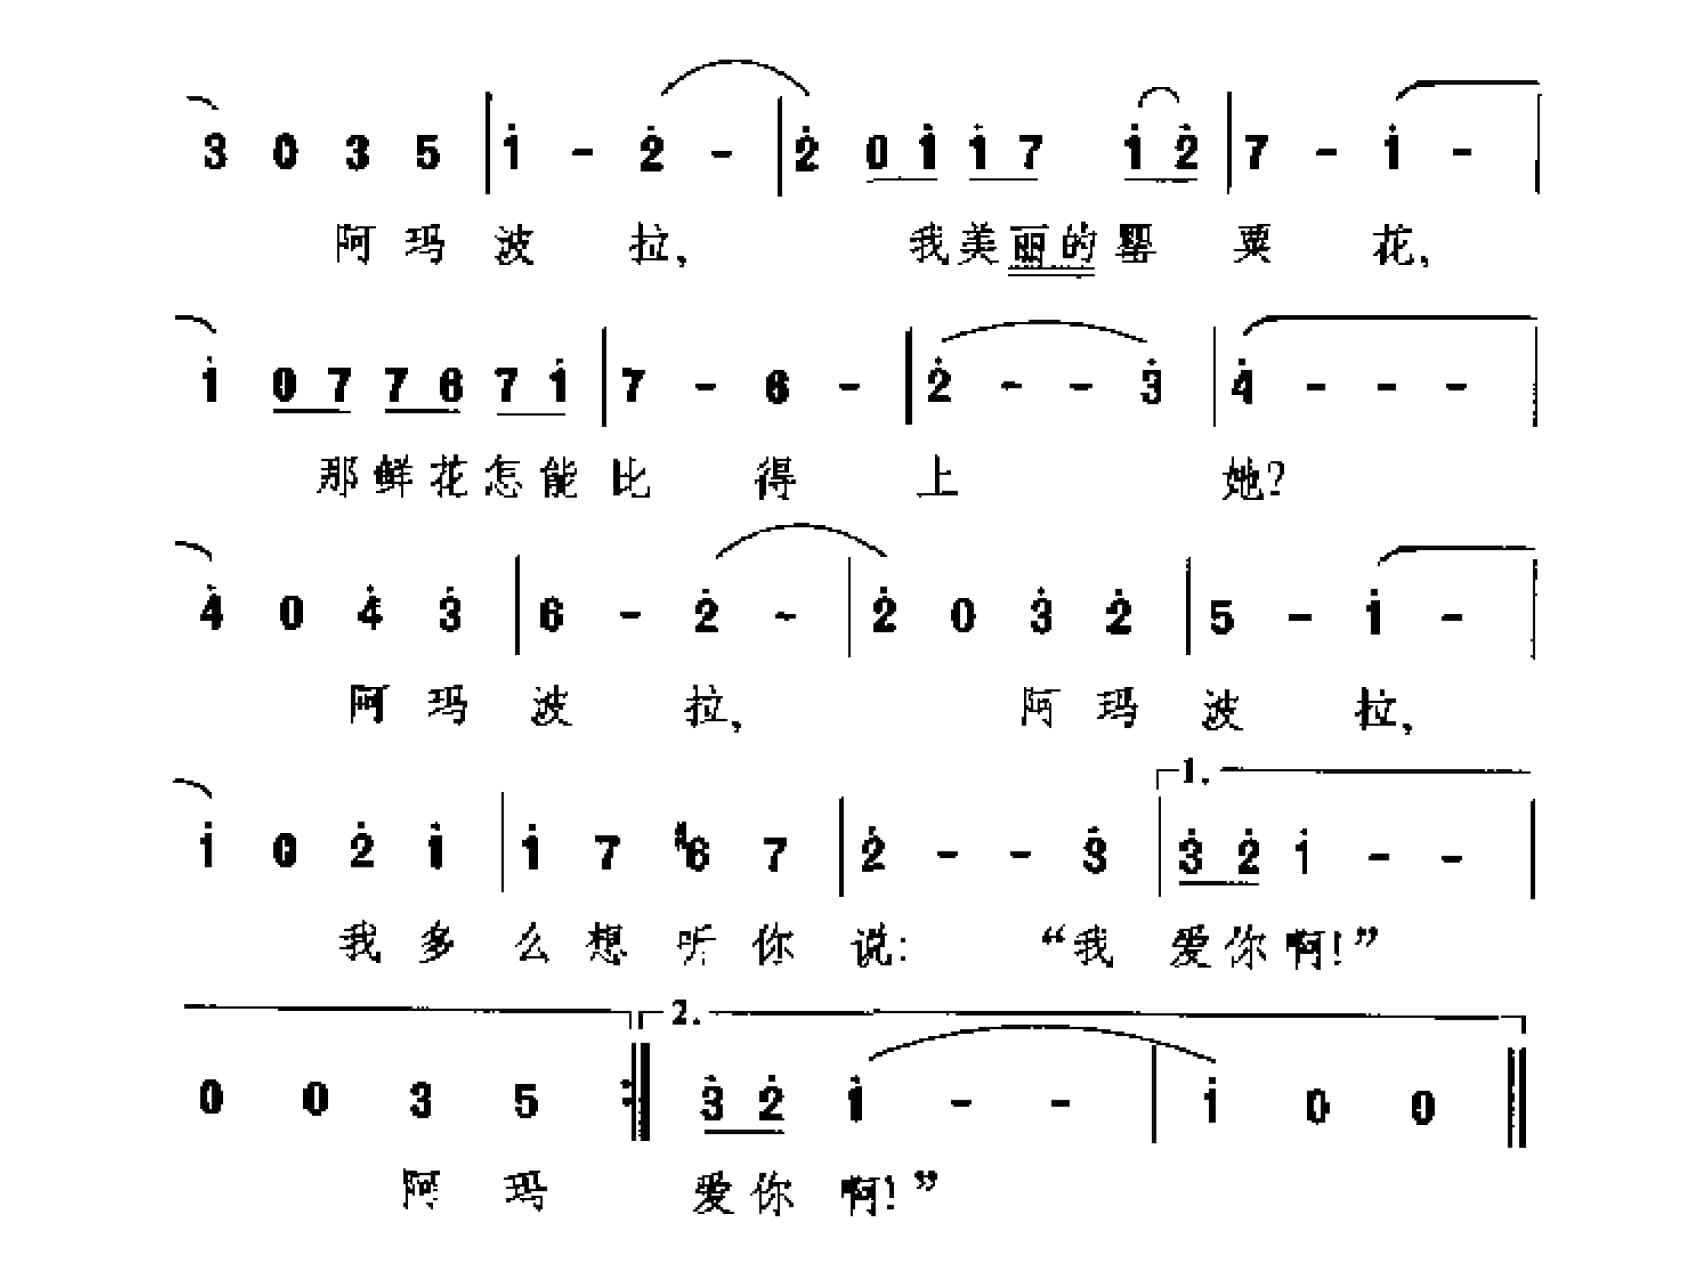 3 0 3 5 | 1̇ - 2̇ - | 2̇ 0 1̇ 1̇ 7 1̇ 2̇ | 7 - 1̇ - |
阿 玛 波 拉, 我 美 丽 的 罂 粟 花,
1̇ 0 7 7 6 7 1̇ | 7 - 6 - | 2̇ - - 3̇ | 4̇ - - - |
那 鲜 花 怎 能 比 得 上 她?
4̇ 0 4̇ 3̇ | 6 - 2̇ - | 2̇ 0 3̇ 2̇ | 5 - 1̇ - |
阿 玛 波 拉, 阿 玛 波 拉,
1.
1̇ 0 2̇ 1̇ | 1̇ 7 #6 7 | 2̇ - - 3̇ | 3̇ 2̇ 1̇ - - |
我 多 么 想 听 你 说: “我 爱 你 啊!”
2.
0 0 3 5 :‖ 3̇ 2̇ 1̇ - - | 1̇ 0 0 ‖
阿 玛 爱 你 啊!”